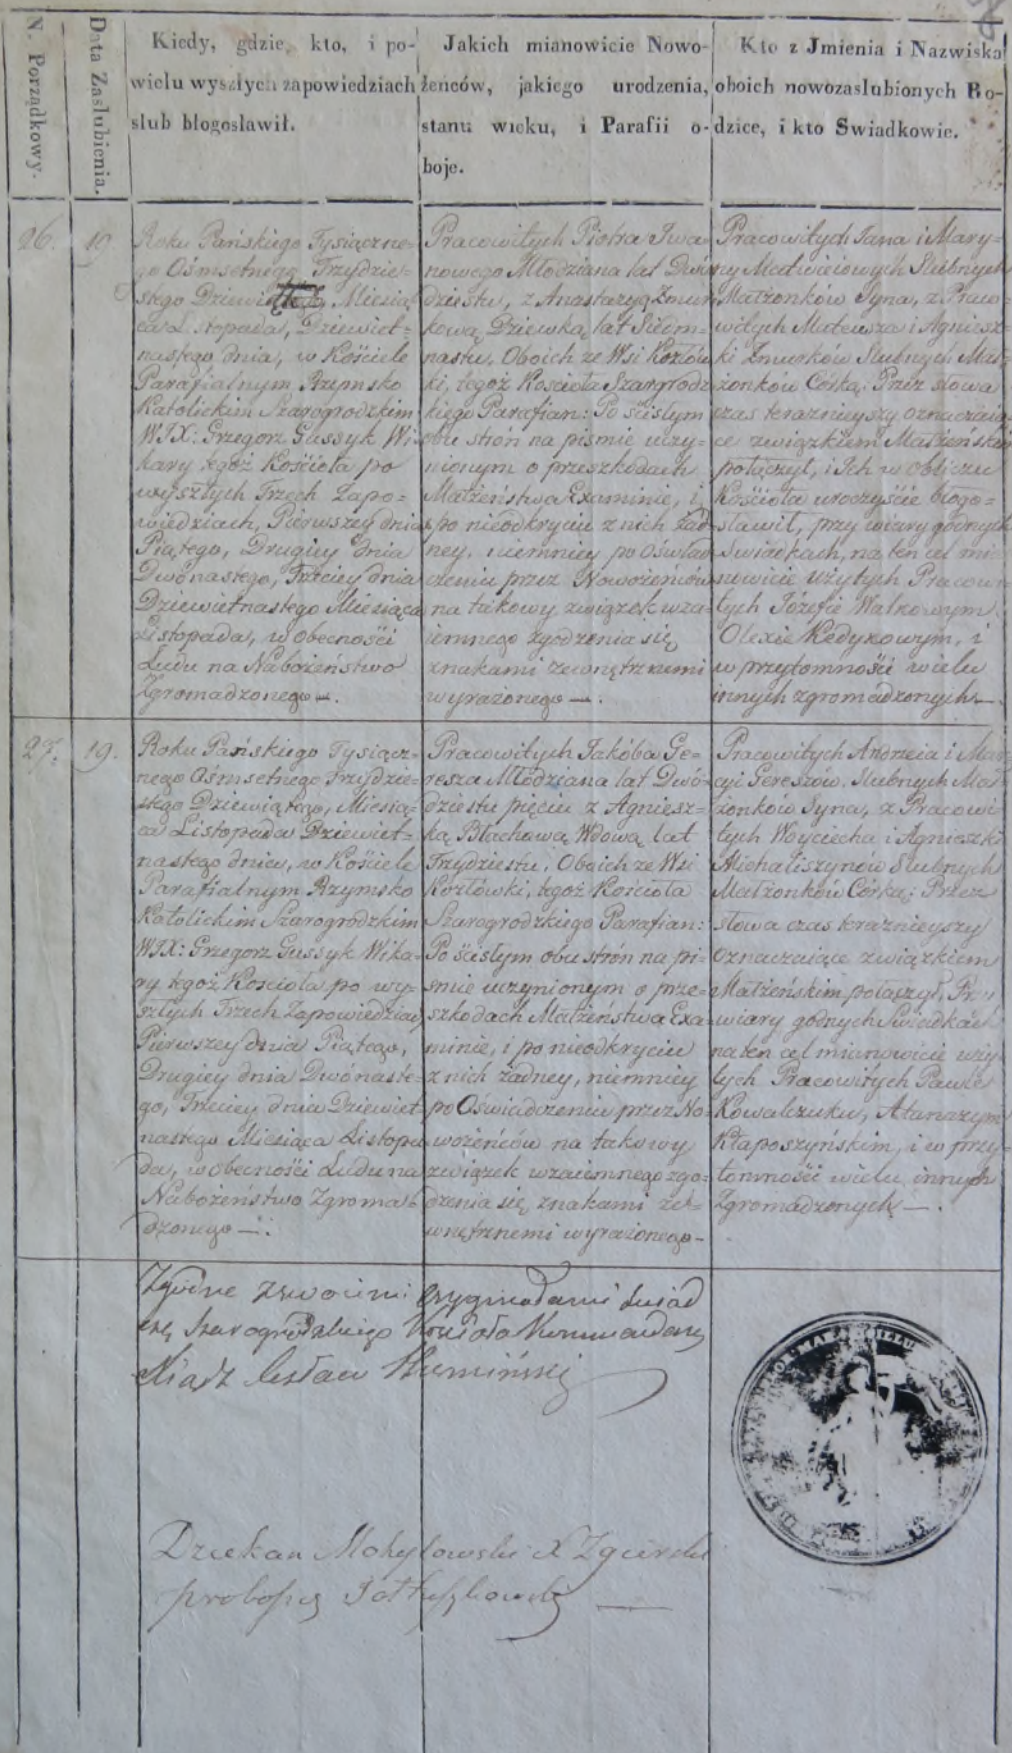 N. Porządkowy.
Data Zaslubienia.
Kiedy, gdzie, kto, i po-
wielu wyszłych zapowiedziach
slub blogosławił.
Jakich mianowicie Nowo-
żeńców, jakiego urodzenia,
stanu wieku, i Parafii o-
boje.
Kto z Jmienia i Nazwiska
oboich nowozaslubionych Ro-
dzice, i kto Swiadkowie.
26.
19
Roku Pańskiego Tysiączne-
go Ośmsetnego Trzydzie-
stego Dziewiątego, Miesią
ca Listopada, Dziewięt-
nastego dnia, w Kościele
Parafialnym Rzymsko
Katolickim Szarogrodzkim
WJX: Grzegorz Gussyk Wi-
kary tegoż Kościoła po
wyszłych Trzech Zapo-
wiedziach, Pierwszey dnia
Piątego, Drugiey dnia
Dwónastego, Trzeciey dnia
Dziewiętnastego Miesiąca
Listopada, w obecności
Ludu na Nabożeństwo
Zgromadzonego —.
Pracowitych Piotra Iwa-
nowego Młodziana lat Dwó
dziestu, z Anastazyą Żmur
kową Dziewką lat Siedm-
nastu. Oboich ze Wsi Kozłów
ki, tegoż Kościoła Szargrodz
kiego Parafian: Po ścisłym
obu stron na pismie uczy-
nionym o przeszkodach
Małżeństwa Examinie, i
po nieodkryciu z nich żad-
ney, niemniey po Oświad
czeniu przez Nowożeńców
na takowy związek wza-
iemnego zgodzenia się
znakami zewnętrznemi
wyrażonego —.
Pracowitych Jana i Mary-
ny Matwiciowych Slubnych
Małżonków Syna, z Praco-
witych Mateusza i Agniesz-
ki Żmurków Slubnych Mał-
żonków Córką: Przez słowa
czas teraznieyszy oznaczaią-
ce związkiem Małżeńskim
połączył, i Ich w obliczu
Kościoła uroczyście błogo-
sławił, przy wiary godnych
Swiadkach, na ten cel mia
nowicie użytych Pracowi-
tych Józefie Walkowym
Olexie Kedykowym, i
w przytomności wielu
innych zgromadzonych —.
27.
19.
Roku Pańskiego Tysiącz-
nego Ośmsetnego Trzydzie-
stego Dziewiątego, Miesią-
ca Listopada Dziewięt-
nastego dnia, w Kościele
Parafialnym Rzymsko
Katolickim Szarogrodzkim
WJX: Grzegorz Gussyk Wika-
ry tegoż Kościoła po wy-
szłych Trzech Zapowiedziach
Pierwszey dnia Piątego,
Drugiey dnia Dwónaste-
go, Trzeciey dnia Dziewięt
nastego Miesiąca Listopa
da, w obecności Ludu na
Nabożeństwo Zgroma-
dzonego —.
Pracowitych Jakóba Ge-
resza Młodziana lat Dwó-
dziestu pięciu z Agniesz-
ką Błachową Wdową lat
Trzydziestu, Oboich ze Wsi
Kozłówki, tegoż Kościoła
Szarogrodzkiego Parafian:
Po ścisłym obu strón na pi-
śmie uczynionym o prze-
szkodach Małżeństwa Exa-
minie, i po nieodkryciu
z nich żadney, niemniey
po Oświadczeniu przez No-
wożeńców na takowy
związek wzaiemnego zgo-
dzenia się znakami ze-
wnętrznemi wyrażonego —
Pracowitych Andrzeia i Mar
cyi Gereszów Slubnych Mał
żonków Syna, z Pracowi
tych Woyciecha i Agnieszki
Michaliszynów Slubnych
Małżonków Córką: Przez
słowa czas teraznieyszy
oznaczaiące związkiem
Małżeńskim połączył, Przy
wiary godnych Swiadkach
na ten cel mianowicie uży-
tych Pracowitych Pawle
Kowalczuku, Atanazym
Kłaposzyńskim, i w przy-
tomności wielu innych
Zgromadzonych —.
Zgodne z swoimi oryginałami świad
czę Szarogródzkiego Kościoła Kommendarz
Xiądz Czesław
Dziekan Mohylowski X Zgierski
proboszcz